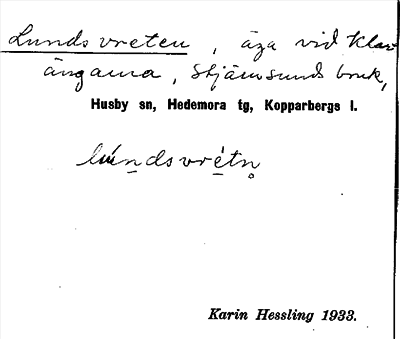 Lundsvreten, äga vid Klav
ängarna, Stjärnsunds bruk,
Husby sn, Hedemora tg, Kopparbergs l.
lúndsvrètn̥
Karin Hessling 1933.